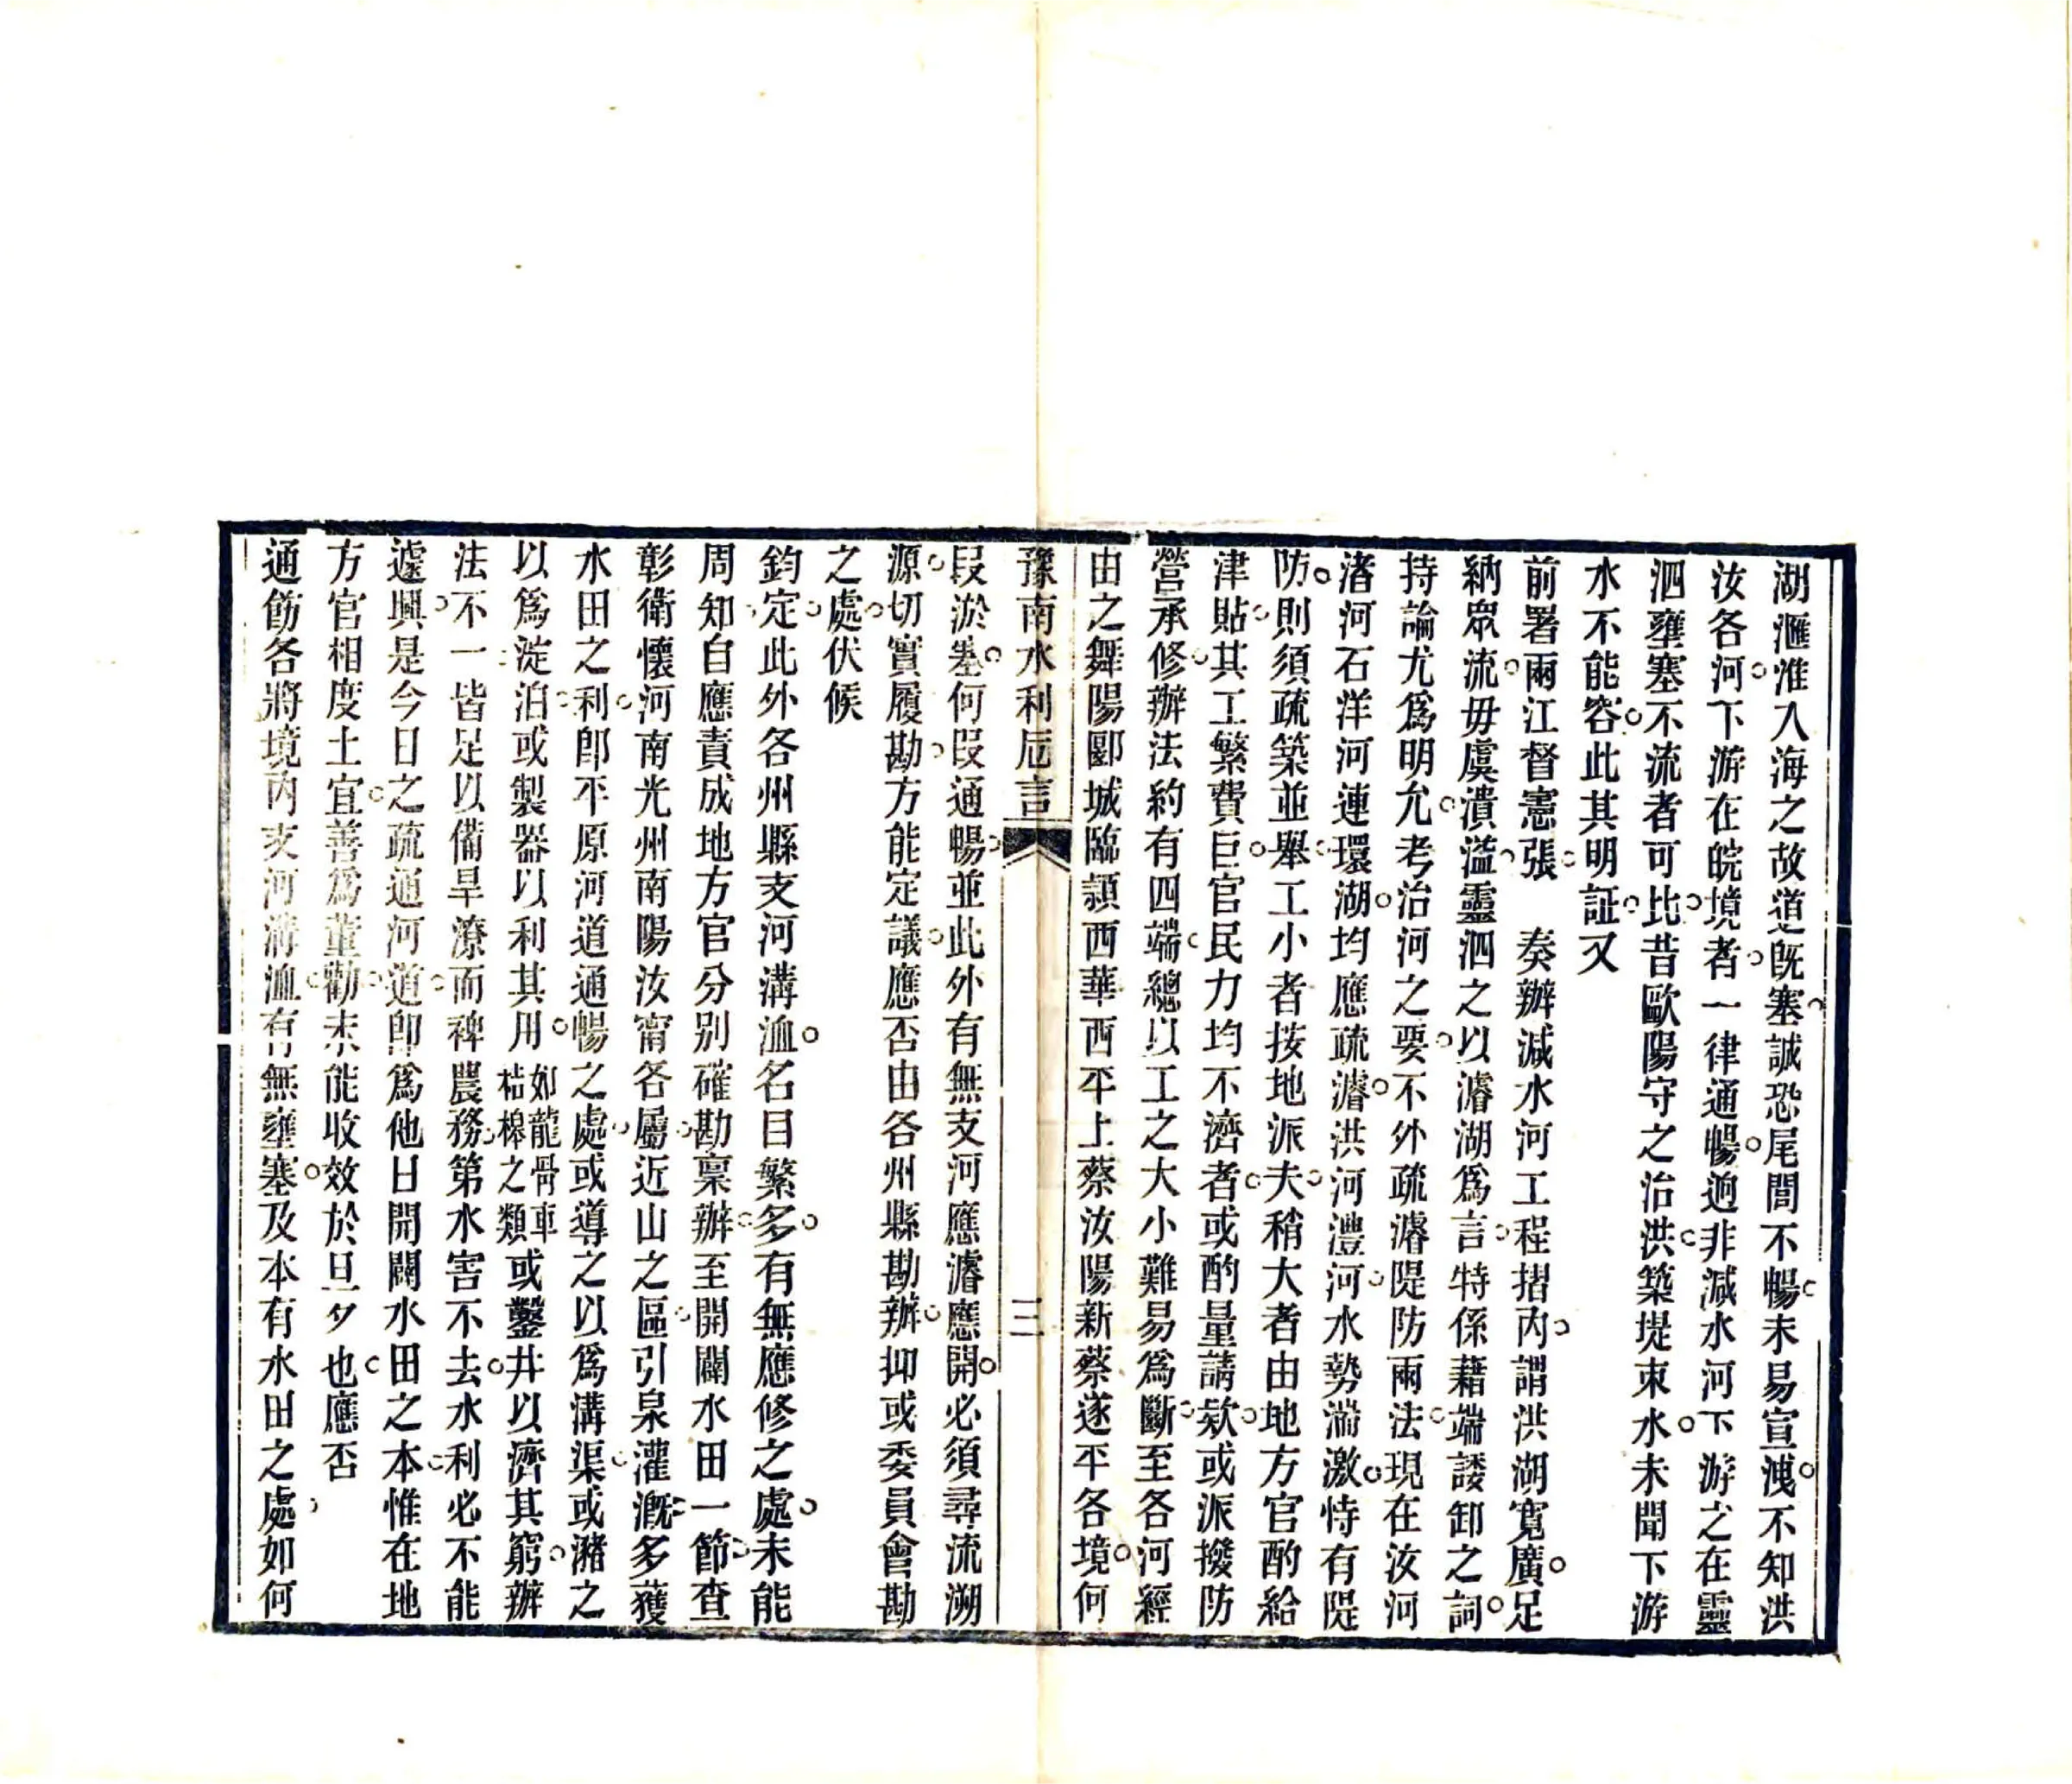 湖滙淮入海之故道旣塞誠恐尾閭不暢未易宣洩不知洪
汝各河下游在皖境者一律通暢逈非減水河下游之在靈
泗壅塞不流者可比昔歐陽守之治洪築堤束水未聞下游
水不能容此其明証又
前署兩江督憲張　奏辦減水河工程摺內謂洪湖寬廣足
納眾流毋虞潰溢靈泗之以濬湖爲言特係藉端諉卸之詞
持論尤爲明允考治河之要不外疏濬隄防兩法現在汝河
渚河石洋河連環湖均應疏濬洪河澧河水勢湍激恃有隄
防則須疏築並舉工小者按地派夫稍大者由地方官酌給
津貼其工繁費巨官民力均不濟者或酌量請欵或派撥防
營承修辦法約有四端總以工之大小難易爲斷至各河經
由之舞陽郾城臨潁西華西平上蔡汝陽新蔡遂平各境何
豫南水利卮言　三
段淤塞何段通暢並此外有無支河應濬應開必須尋流溯
源切實履勘方能定議應否由各州縣勘辦抑或委員會勘
之處伏候
鈞定此外各州縣支河溝洫名目繁多有無應修之處未能
周知自應責成地方官分別確勘稟辦至開闢水田一節查
彰衛懷河南光州南陽汝甯各屬近山之區引泉灌溉多獲
水田之利卽平原河道通暢之處或導之以爲溝渠或瀦之
以爲淀泊或製器以利其用如龍骨車桔橰之類或鑿井以濟其窮辦
法不一皆足以備旱潦而裨農務第水害不去水利必不能
遽興是今日之疏通河道卽爲他日開闢水田之本惟在地
方官相度土宜善爲董勸未能收效於旦夕也應否
通飭各將境內支河溝洫有無壅塞及本有水田之處如何